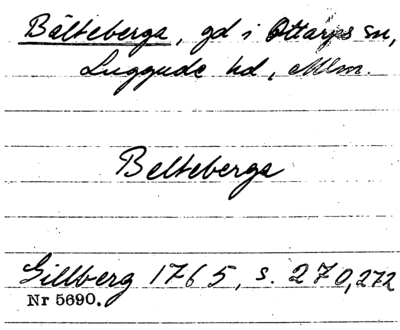 Bälteberga, gd i Ottarps sn,
Luggude hd, Mlm.
Belteberga
Gillberg 1765, s. 270,272
Nr 5690.